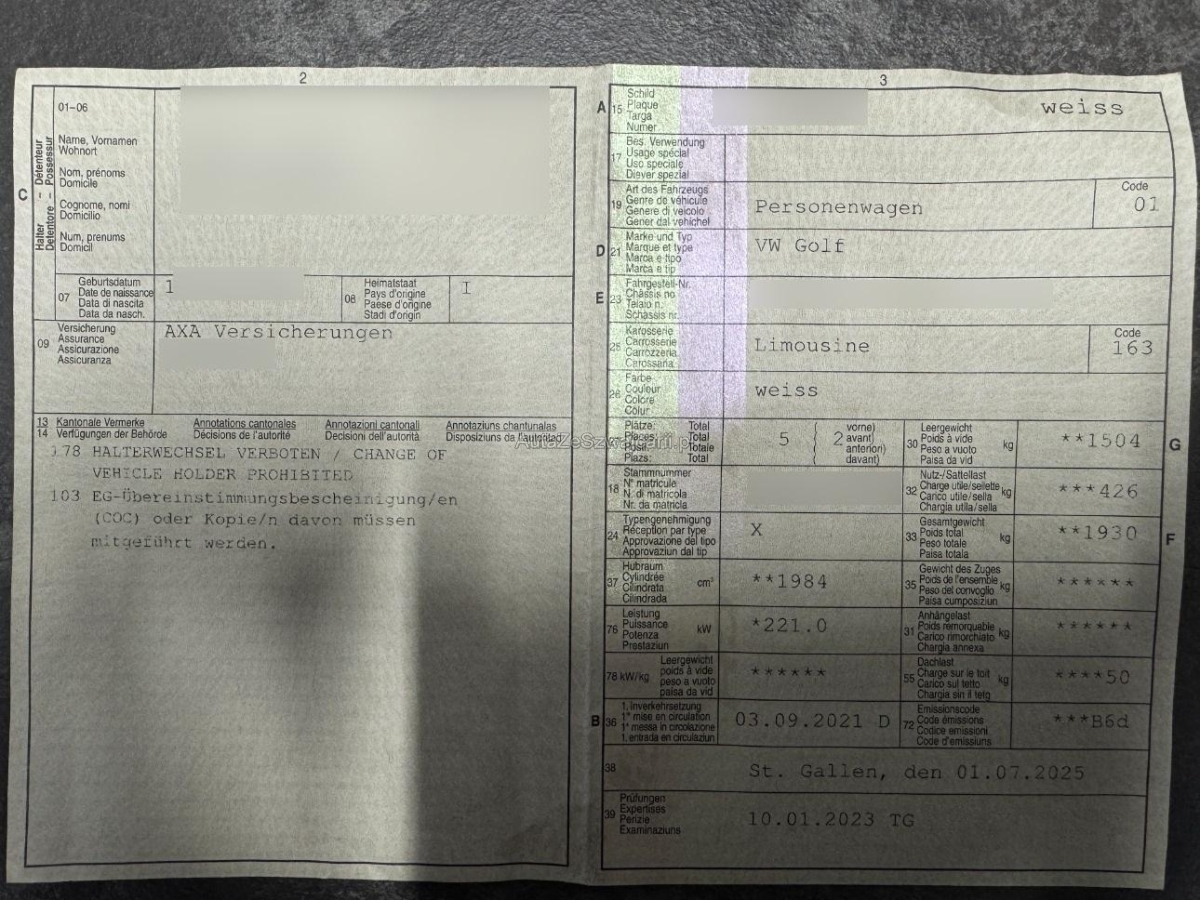 2
01-06
Halter – Détenteur
Detentore – Possessur
C
Name, Vornamen
Wohnort
Nom, prénoms
Domicile
Cognome, nomi
Domicilio
Num, prenums
Domicil
07
Geburtsdatum
Date de naissance
Data di nascita
Data da nasch.
1
08
Heimatstaat
Pays d'origine
Paese d'origine
Stadi d'origin
I
09
Versicherung
Assurance
Assicurazione
Assicuranza
AXA Versicherungen
13 Kantonale Vermerke Annotations cantonales Annotazioni cantonali Annotaziuns chantunalas
14 Verfügungen der Behörde Décisions de l'autorité Decisioni dell'autorità Disposiziuns da l'autoritad
178 HALTERWECHSEL VERBOTEN / CHANGE OF
VEHICLE HOLDER PROHIBITED
103 EG-Übereinstimmungsbescheinigung/en
(COC) oder Kopie/n davon müssen
mitgeführt werden.
3
A
15
Schild
Plaque
Targa
Numer
weiss
17
Bes. Verwendung
Usage spécial
Uso speciale
Diever spezial
19
Art des Fahrzeugs
Genre de véhicule
Genere di veicolo
Gener dal vehichel
Personenwagen
Code
01
D
21
Marke und Typ
Marque et type
Marca e tipo
Marca e tip
VW Golf
E
23
Fahrgestell-Nr.
Châssis no
Telaio n.
Schassis nr.
25
Karosserie
Carrosserie
Carrozzeria
Carossaria
Limousine
Code
163
26
Farbe
Couleur
Colore
Colur
weiss
Plätze: Total
Places: Total
Posti: Totale
Plazs: Total
5
2
vorne)
avant)
anteriori)
davant)
30
Leergewicht
Poids à vide
Peso a vuoto
Paisa da vid
kg
**1504
G
18
Stammnummer
N° matricule
N. di matricola
Nr. da matricla
32
Nutz-/Sattellast
Charge utile/sellette
Carico utile/sella
Chargia utila/sella
kg
***426
24
Typengenehmigung
Réception par type
Approvazione del tipo
Approvaziun dal tip
X
33
Gesamtgewicht
Poids total
Peso totale
Paisa totala
kg
**1930
F
37
Hubraum
Cylindrée
Cilindrata
Cilindrada
cm³
**1984
35
Gewicht des Zuges
Poids de l'ensemble
Peso del convoglio
Paisa cumposiziun
kg
******
76
Leistung
Puissance
Potenza
Prestaziun
kW
*221.0
31
Anhängelast
Poids remorquable
Carico rimorchiato
Chargia annexa
kg
******
78 kW/kg
Leergewicht
poids à vide
peso a vuoto
paisa da vid
******
55
Dachlast
Charge sur le toit
Carico sul tetto
Chargia sin il tetg
kg
****50
B
36
1. Inverkehrsetzung
1re mise en circulation
1a messa in circolazione
1. entrada en circulaziun
03.09.2021 D
72
Emissionscode
Code émissions
Codice emissioni
Code d'emissiuns
***B6d
38
St. Gallen, den 01.07.2025
39
Prüfungen
Expertises
Perizie
Examinaziuns
10.01.2023 TG
AutaZeSzwajcarii.pl